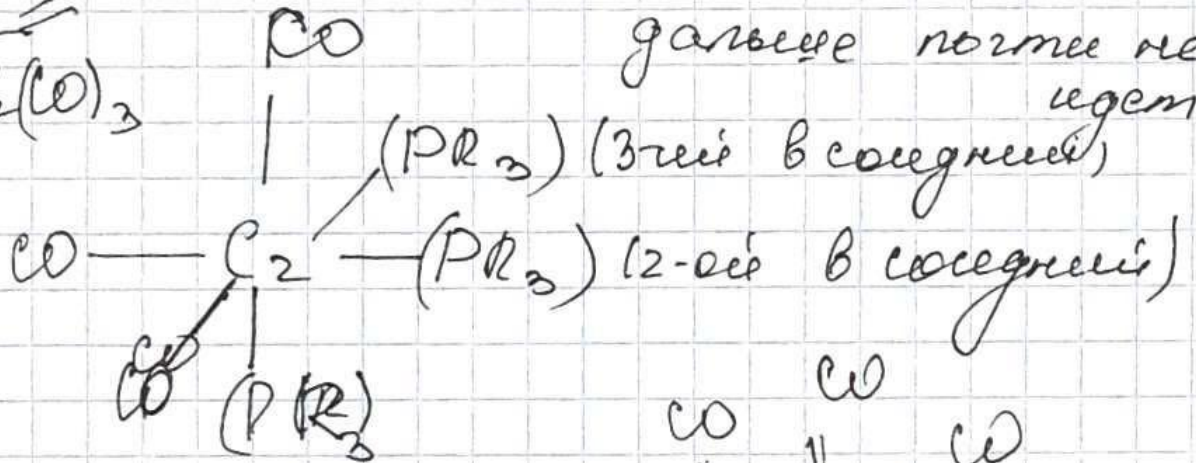 CO дальше почти не
(CO)₃ идет
(PR₃) (3-ий в соседний)
CO — C₂ — (PR₃) (2-ой в соседний)
CO (PR₃)
CO CO CO